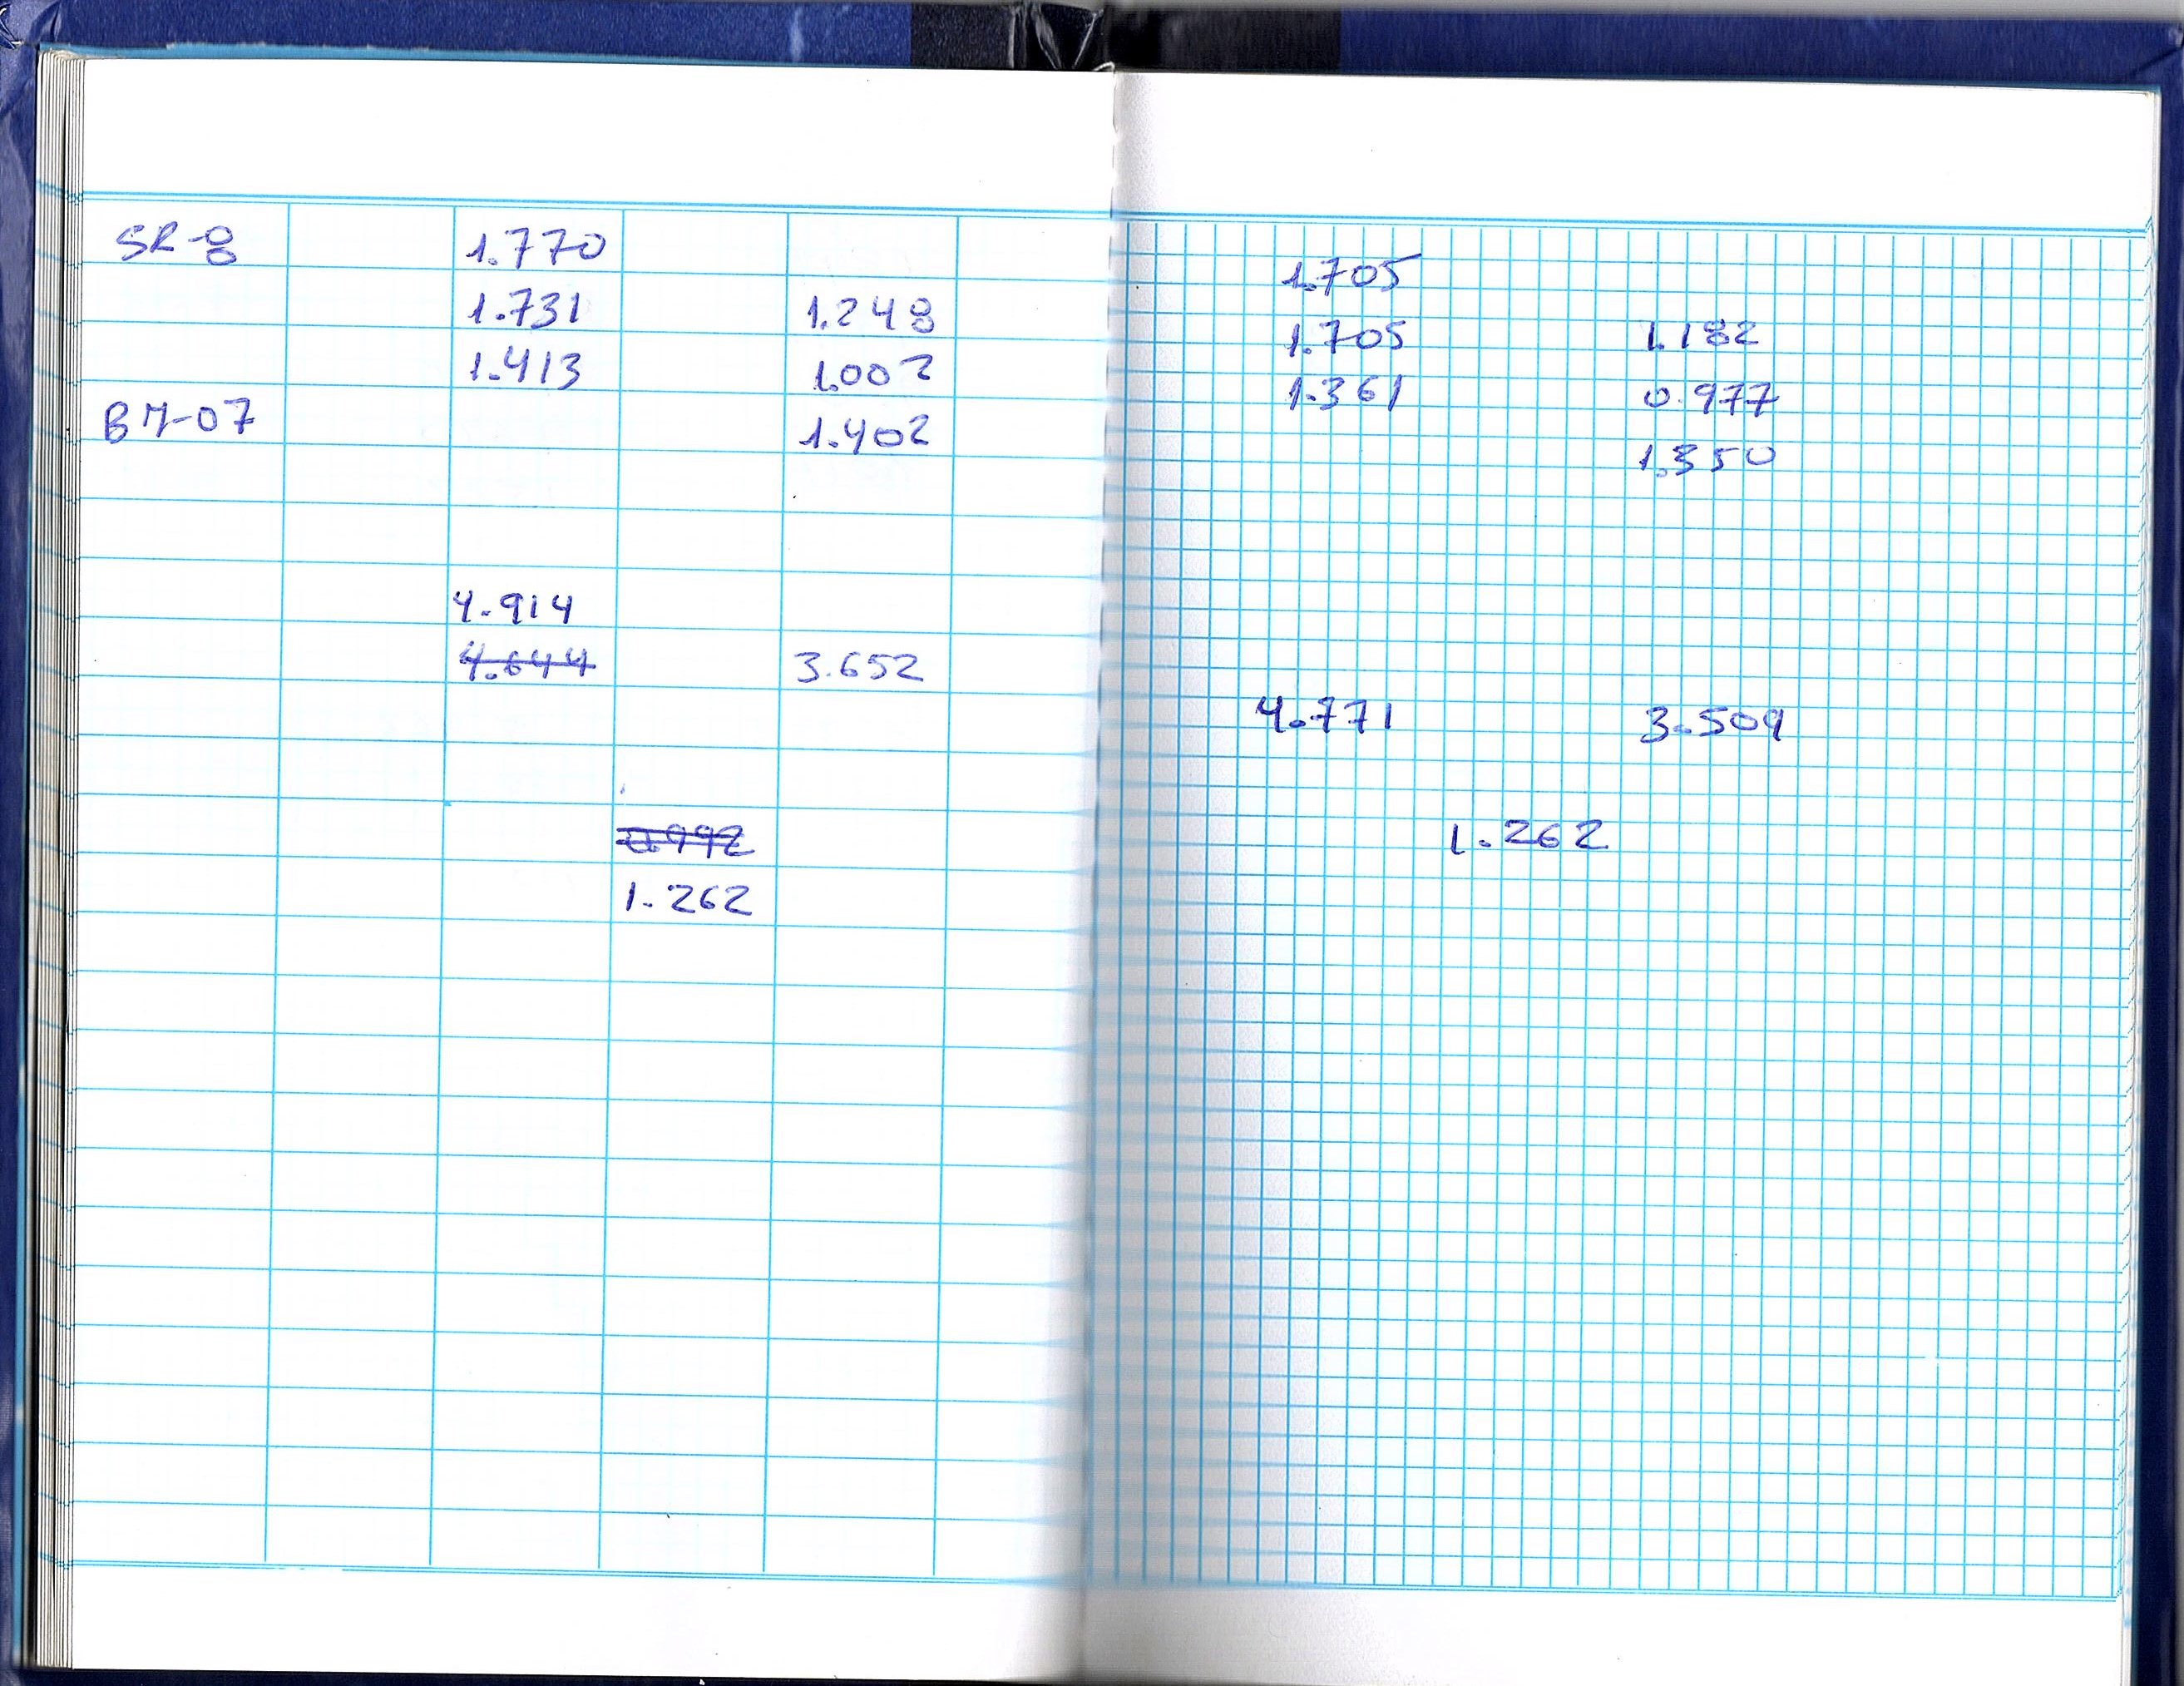 SR-8 1.770
1.731 1.248
1.413 1.002
BM-07 1.402
4.914
4.644 3.652
0.992
1.262
1.705
1.705 1.182
1.361 0.977
1.350
4.771 3.509
1.262